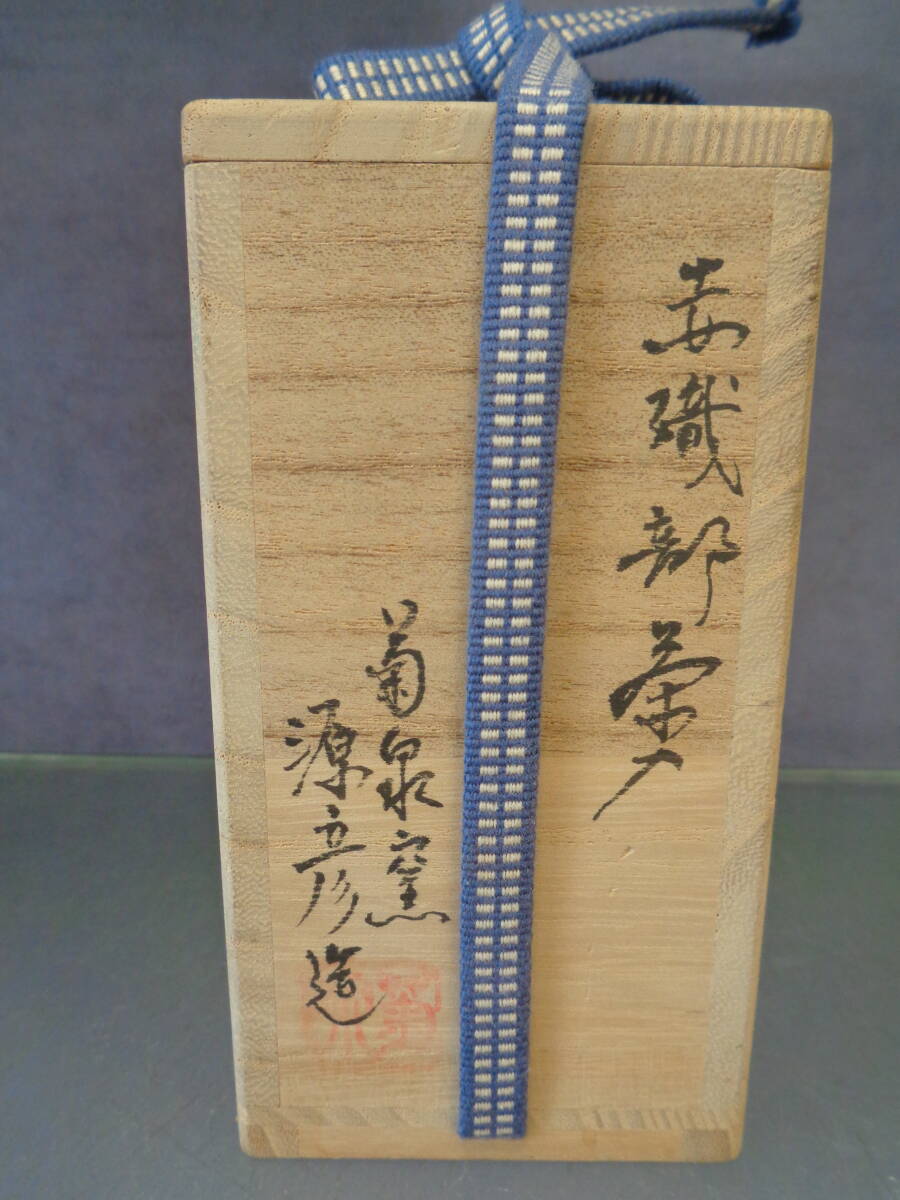 赤織部茶入
菊泉窯
源彦造